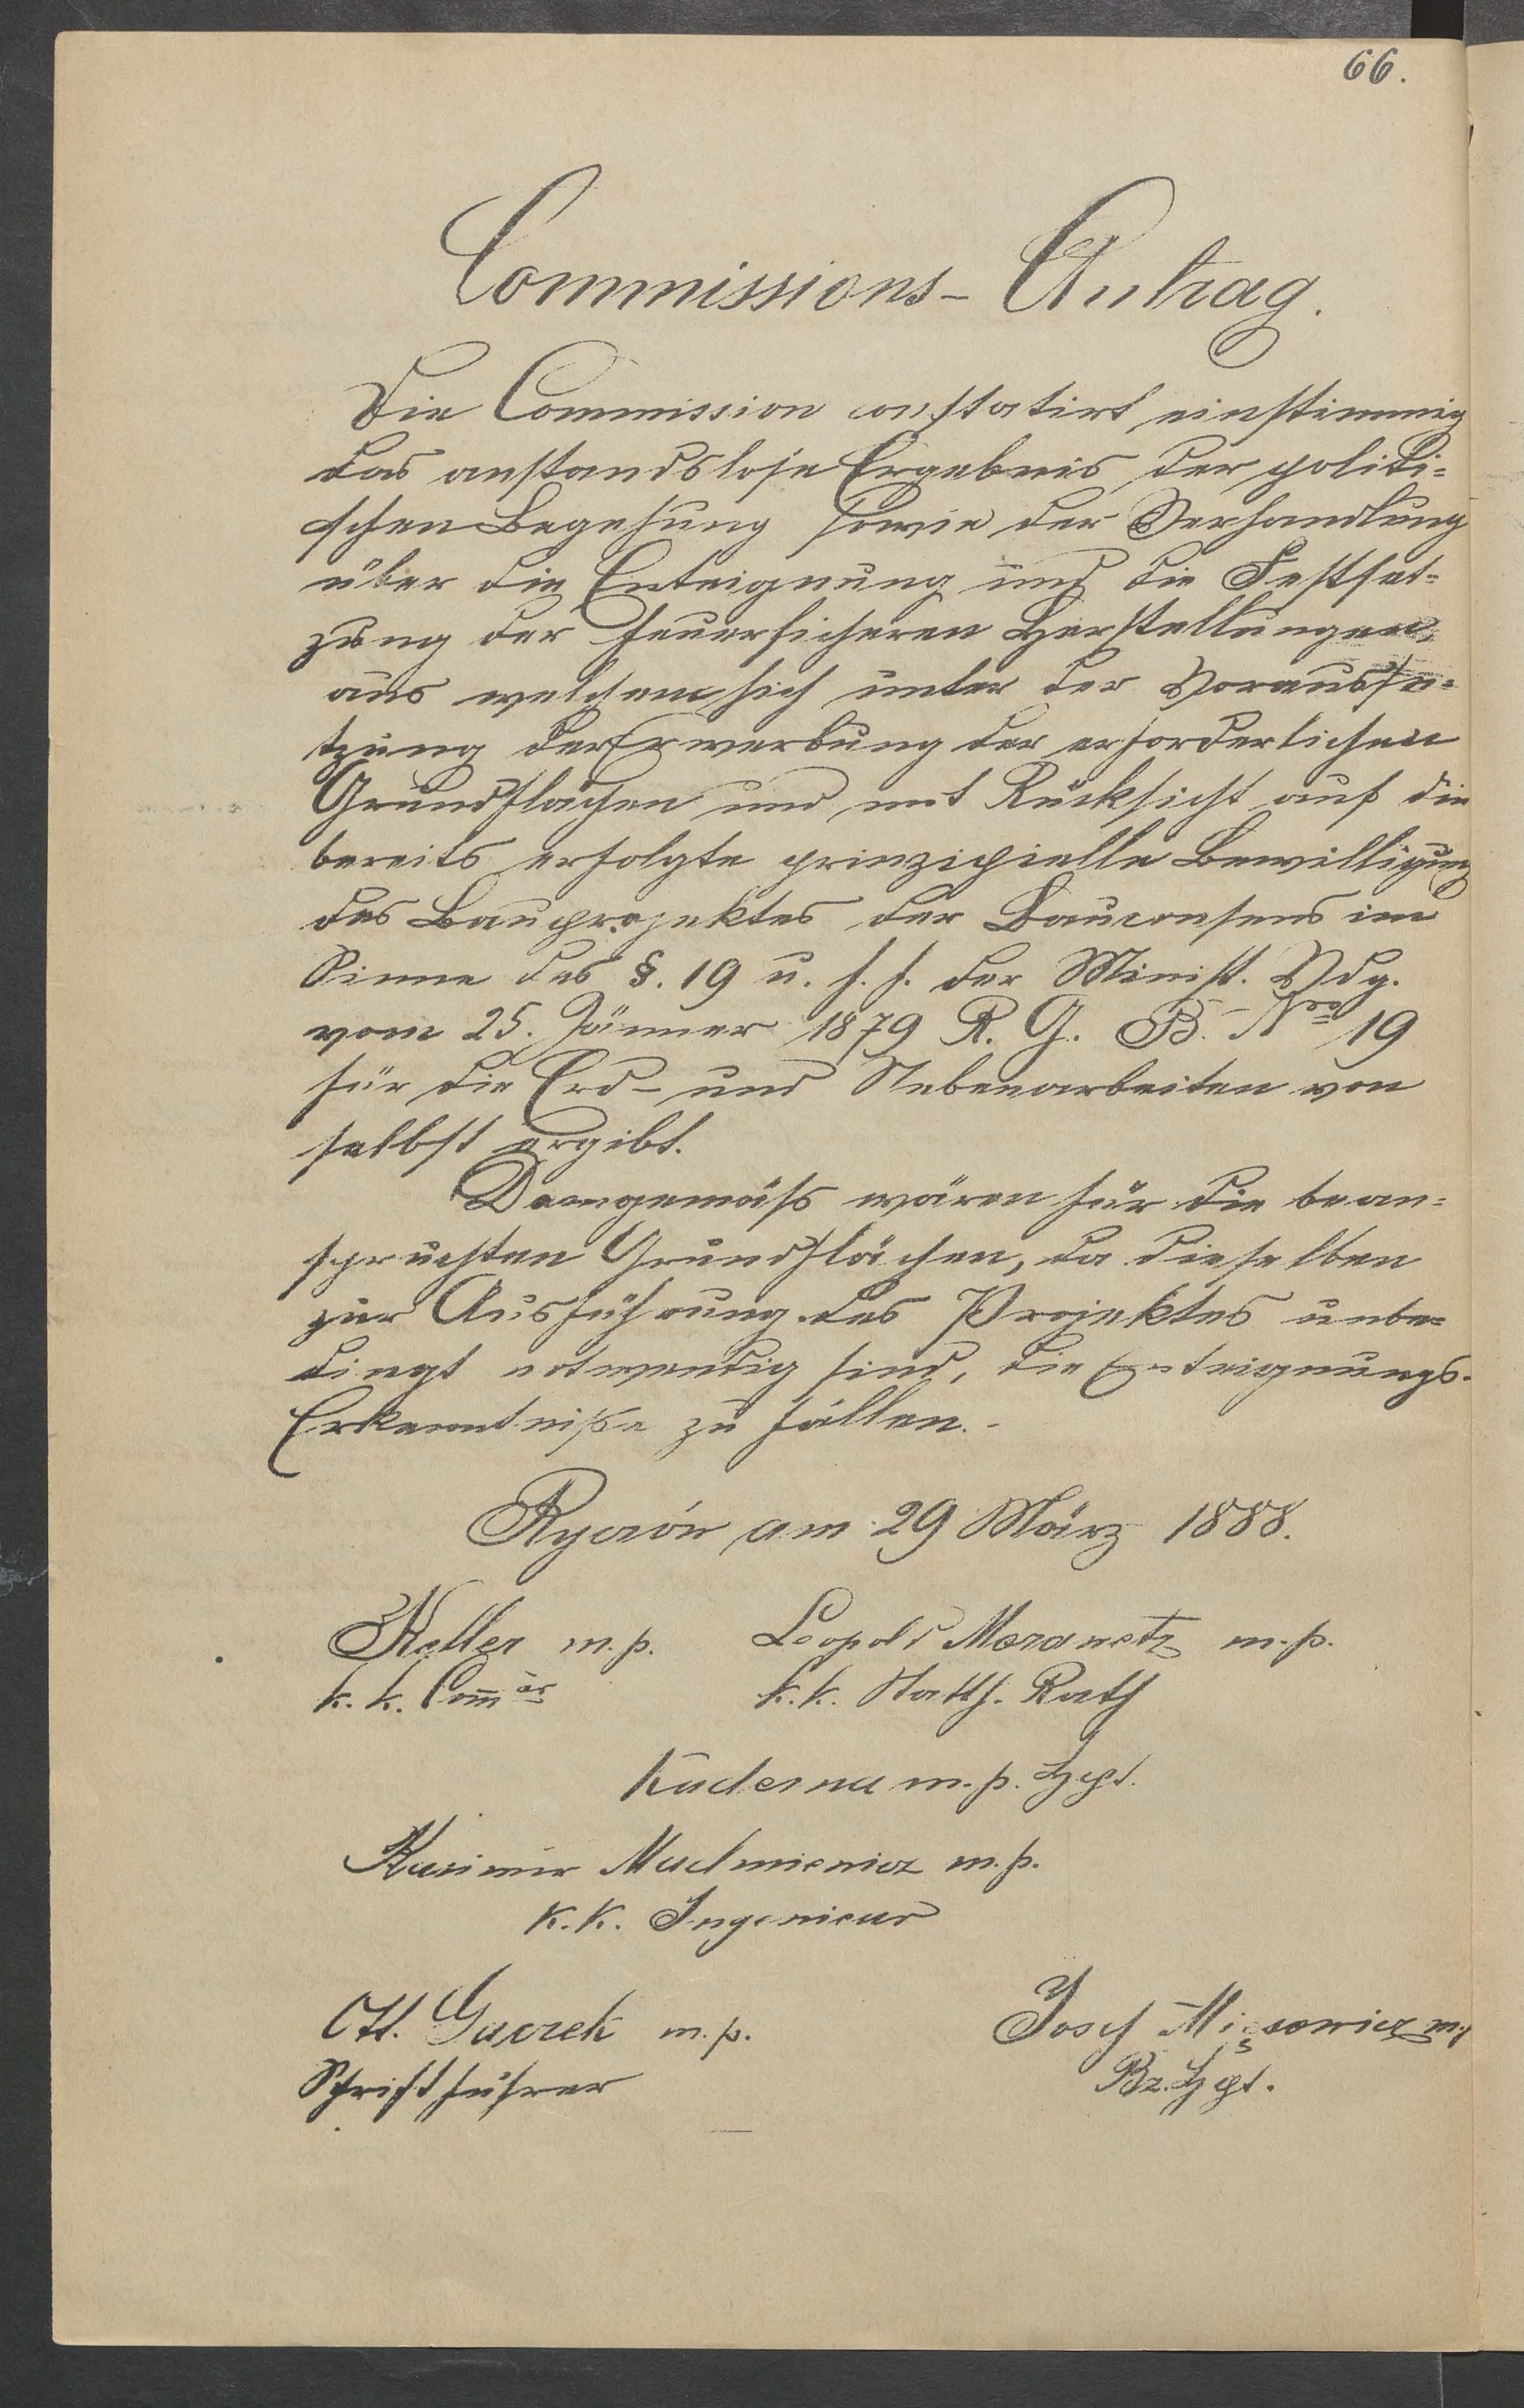 66.
Commissions-Antrag.
Die Commission constatirt einstimmig
das anstandslose Ergebnis der politi=
schen Begehung sowie der Verhandlung
über die Enteignung und die Festset=
zung der feuersicheren Herstellungen,
aus welchem sich unter der Vorausse=
tzung der Erwerbung der erforderlichen
Grundflächen und mit Rücksicht auf die
bereits erfolgte prinzipielle Bewilligung
des Bauprojektes der Bauconsens im
Sinne des §. 19 u. f. f. der Minist. Vdg.
vom 25. Jänner 1879 R. G. B. Nro 19
für die Erd- und Nebenarbeiten von
selbst ergibt.
Demgemäss wären für die bean=
spruchten Grundflächen, da dieselben
zur Ausführung des Projektes unbe=
dingt notwendig sind, die Enteignungs-
Erkenntniße zu fällen.-
am 29 März 1888.
Keller m. p. Leopold m. p.
k. k. Commär k. k. Statth. Rath
Kuderna m. p. Hptm.
Kasimir m. p.
K. K. Ingenieur
Gaczek m. p. Josef Mięsowicz m. p.
Schriftführer Bz. Hptm.